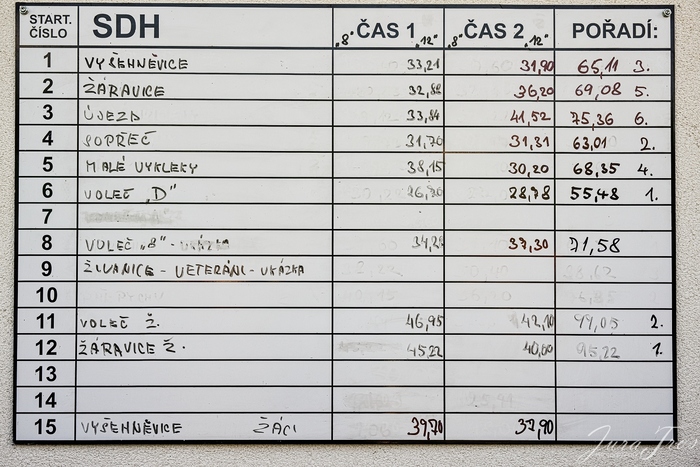 START. ČÍSLO SDH „8" ČAS 1 „12" „8" ČAS 2 „12" POŘADÍ:
1 VYŠEHNĚVICE 33,21 31,90 65,11 3.
2 ŽÁRAVICE 32,88 36,20 69,08 5.
3 ÚJEZD 33,84 41,52 75,36 6.
4 SOPŘEČ 31,70 31,31 63,01 2.
5 MALÉ VYKLEKY 38,15 30,20 68,35 4.
6 VOLEČ „D" 26,70 28,78 55,48 1.
7
8 VOLEČ „8" - UKÁZKA 34,28 37,30 71,58
9 ŽIVANICE - VETERÁNI - UKÁZKA
10
11 VOLEČ Ž. 46,95 42,10 2.
12 ŽÁRAVICE Ž. 45,22 40,00 95,22 1.
13
14
15 VYŠEHNĚVICE ŽÁCI 39,70 37,90